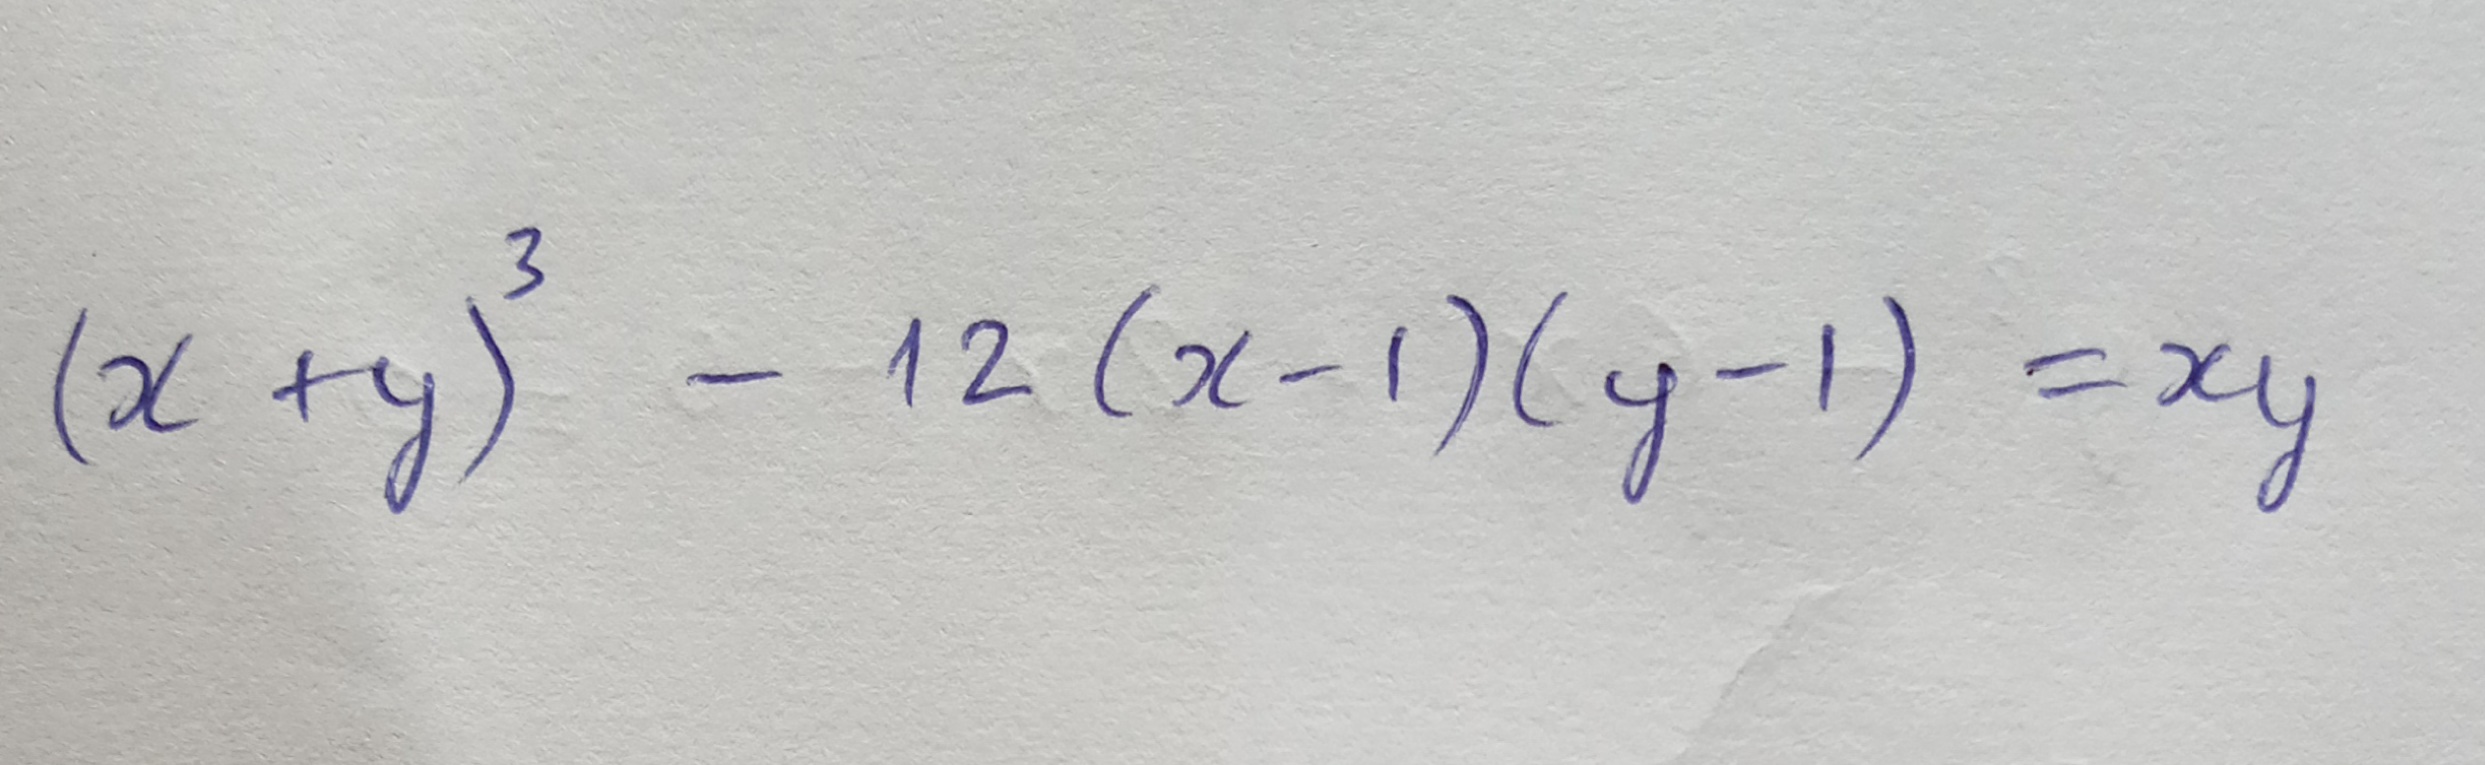 (x + y)³ - 12 (x - 1)(y - 1) = xy